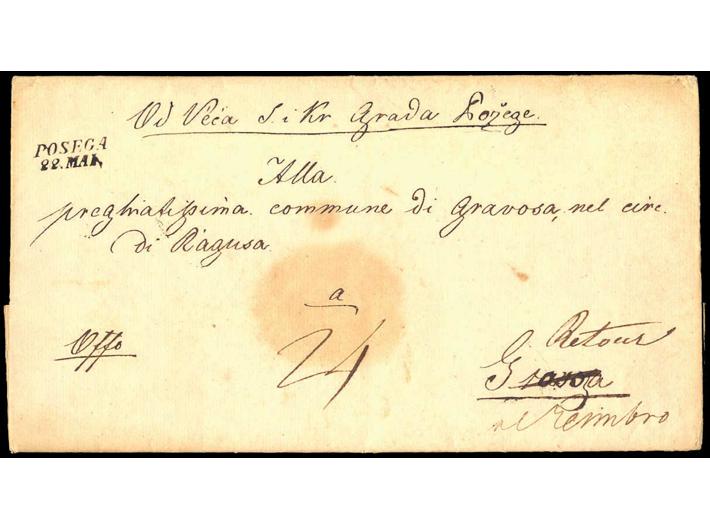 Od Veća S. i Kr Grada Požege.
POSEGA
22. MAI.
Alla
preghiatissima commune di Gravosa, nel circ.
di Ragusa
a
24
Offo
Retour
Reimbro